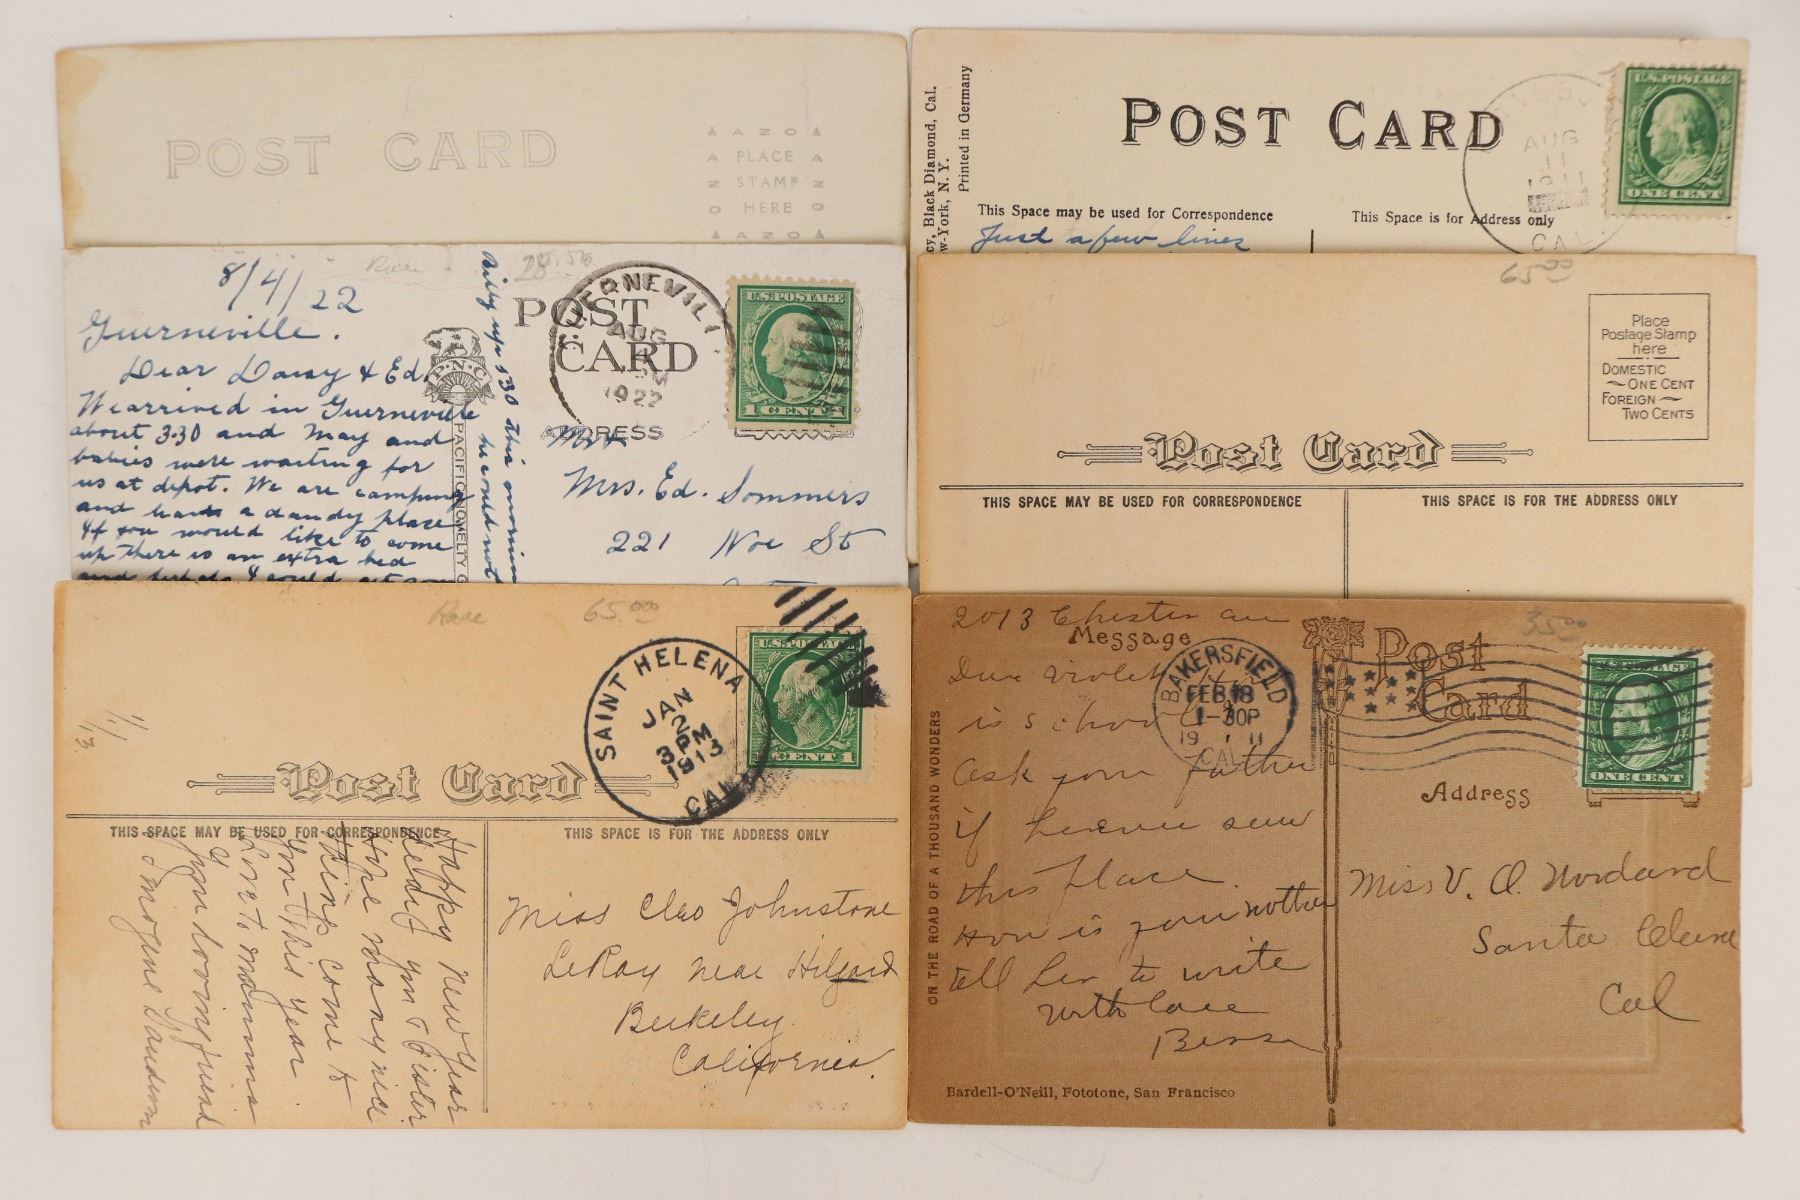 POST CARD
AZO
PLACE
STAMP
HERE
AZO
cy, Black Diamond, Cal.
w-York, N. Y.
Printed in Germany
POST CARD
AUG
11
1911
CAL.
U.S. POSTAGE
ONE CENT
This Space may be used for Correspondence
This Space is for Address only
Just a few lines
8/4/22
Rare
28.50
Guerneville.
Dear Daisy & Ed.
We arrived in Guerneville
about 3.30 and May and
babies were waiting for
us at depot. We are camping
and have a dandy place
If you would like to come
up there is an extra bed
Billy up 5:30 this morning
he could not
P.N.C.
PACIFIC NOVELTY C
POST
CARD
GUERNEVILL
AUG
1922
U.S. POSTAGE
1 CENT 1
ADDRESS
Mrs. Ed. Sommers
221 Noe St
65.00
Place
Postage Stamp
here
DOMESTIC
ONE CENT
FOREIGN
TWO CENTS
Post Card
THIS SPACE MAY BE USED FOR CORRESPONDENCE
THIS SPACE IS FOR THE ADDRESS ONLY
Rare
65.00
1/1/13
SAINT HELENA
JAN
2
3 PM
1913
CAL.
U.S. POSTAGE
1 CENT 1
Post Card
THIS SPACE MAY BE USED FOR CORRESPONDENCE
THIS SPACE IS FOR THE ADDRESS ONLY
Happy New Year
to you & Sister
Hope many nice
things come to
you this year
Love to mamma
Your loving friend
Imogene
Miss Cleo Johnstone
LeRoy near Hilgard
Berkeley
California.
2013 Chester ave
Message
Dear Violet
is school
ask your father
if he ever saw
this place.
How is your mother
tell her to write
with love
Bessie
35.00
BAKERSFIELD
FEB 18
1-30P
19 11
CAL.
Post
Card
U.S. POSTAGE
ONE CENT
Address
Miss V. O. Woodard
Santa Clara
Cal
ON THE ROAD OF A THOUSAND WONDERS
Bardell-O'Neill, Fototone, San Francisco